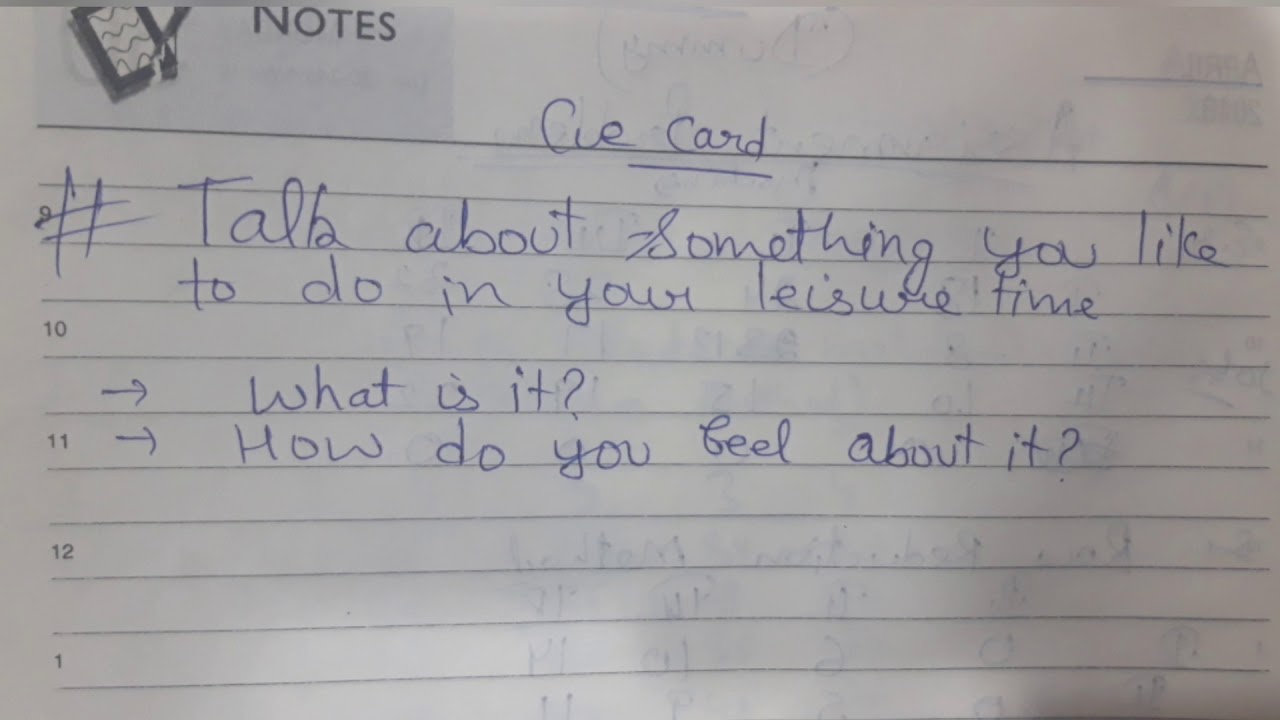 NOTES
Cue Card
# Talk about something you like
to do in your leisure time
10
→ What is it?
11 → How do you feel about it?
12
1